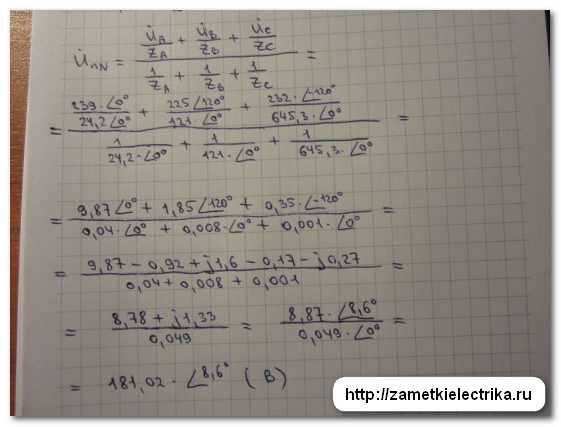 U̇nN = (U̇A/ZA + U̇B/ZB + U̇C/ZC) / (1/ZA + 1/ZB + 1/ZC) =
= (239·∠0°/24,2∠0° + 225∠120°/121·∠0° + 232·∠-120°/645,3·∠0°) / (1/24,2·∠0° + 1/121·∠0° + 1/645,3·∠0°) =
= (9,87∠0° + 1,85∠120° + 0,35·∠-120°) / (0,04·∠0° + 0,008·∠0° + 0,001·∠0°) =
= (9,87 - 0,92 + j1,6 - 0,17 - j0,27) / (0,04 + 0,008 + 0,001) =
= (8,78 + j1,33) / 0,049 = (8,87·∠8,6°) / (0,049·∠0°) =
= 181,02·∠8,6° (В)
http://zametkielectrika.ru